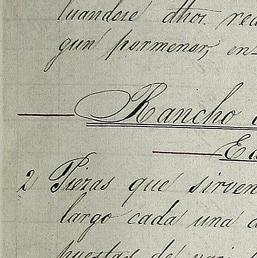 luandose dhos. rea
gun pormenor, en-
Rancho
Ea
2 Piezas que sirven
largo cada una d
puestas de